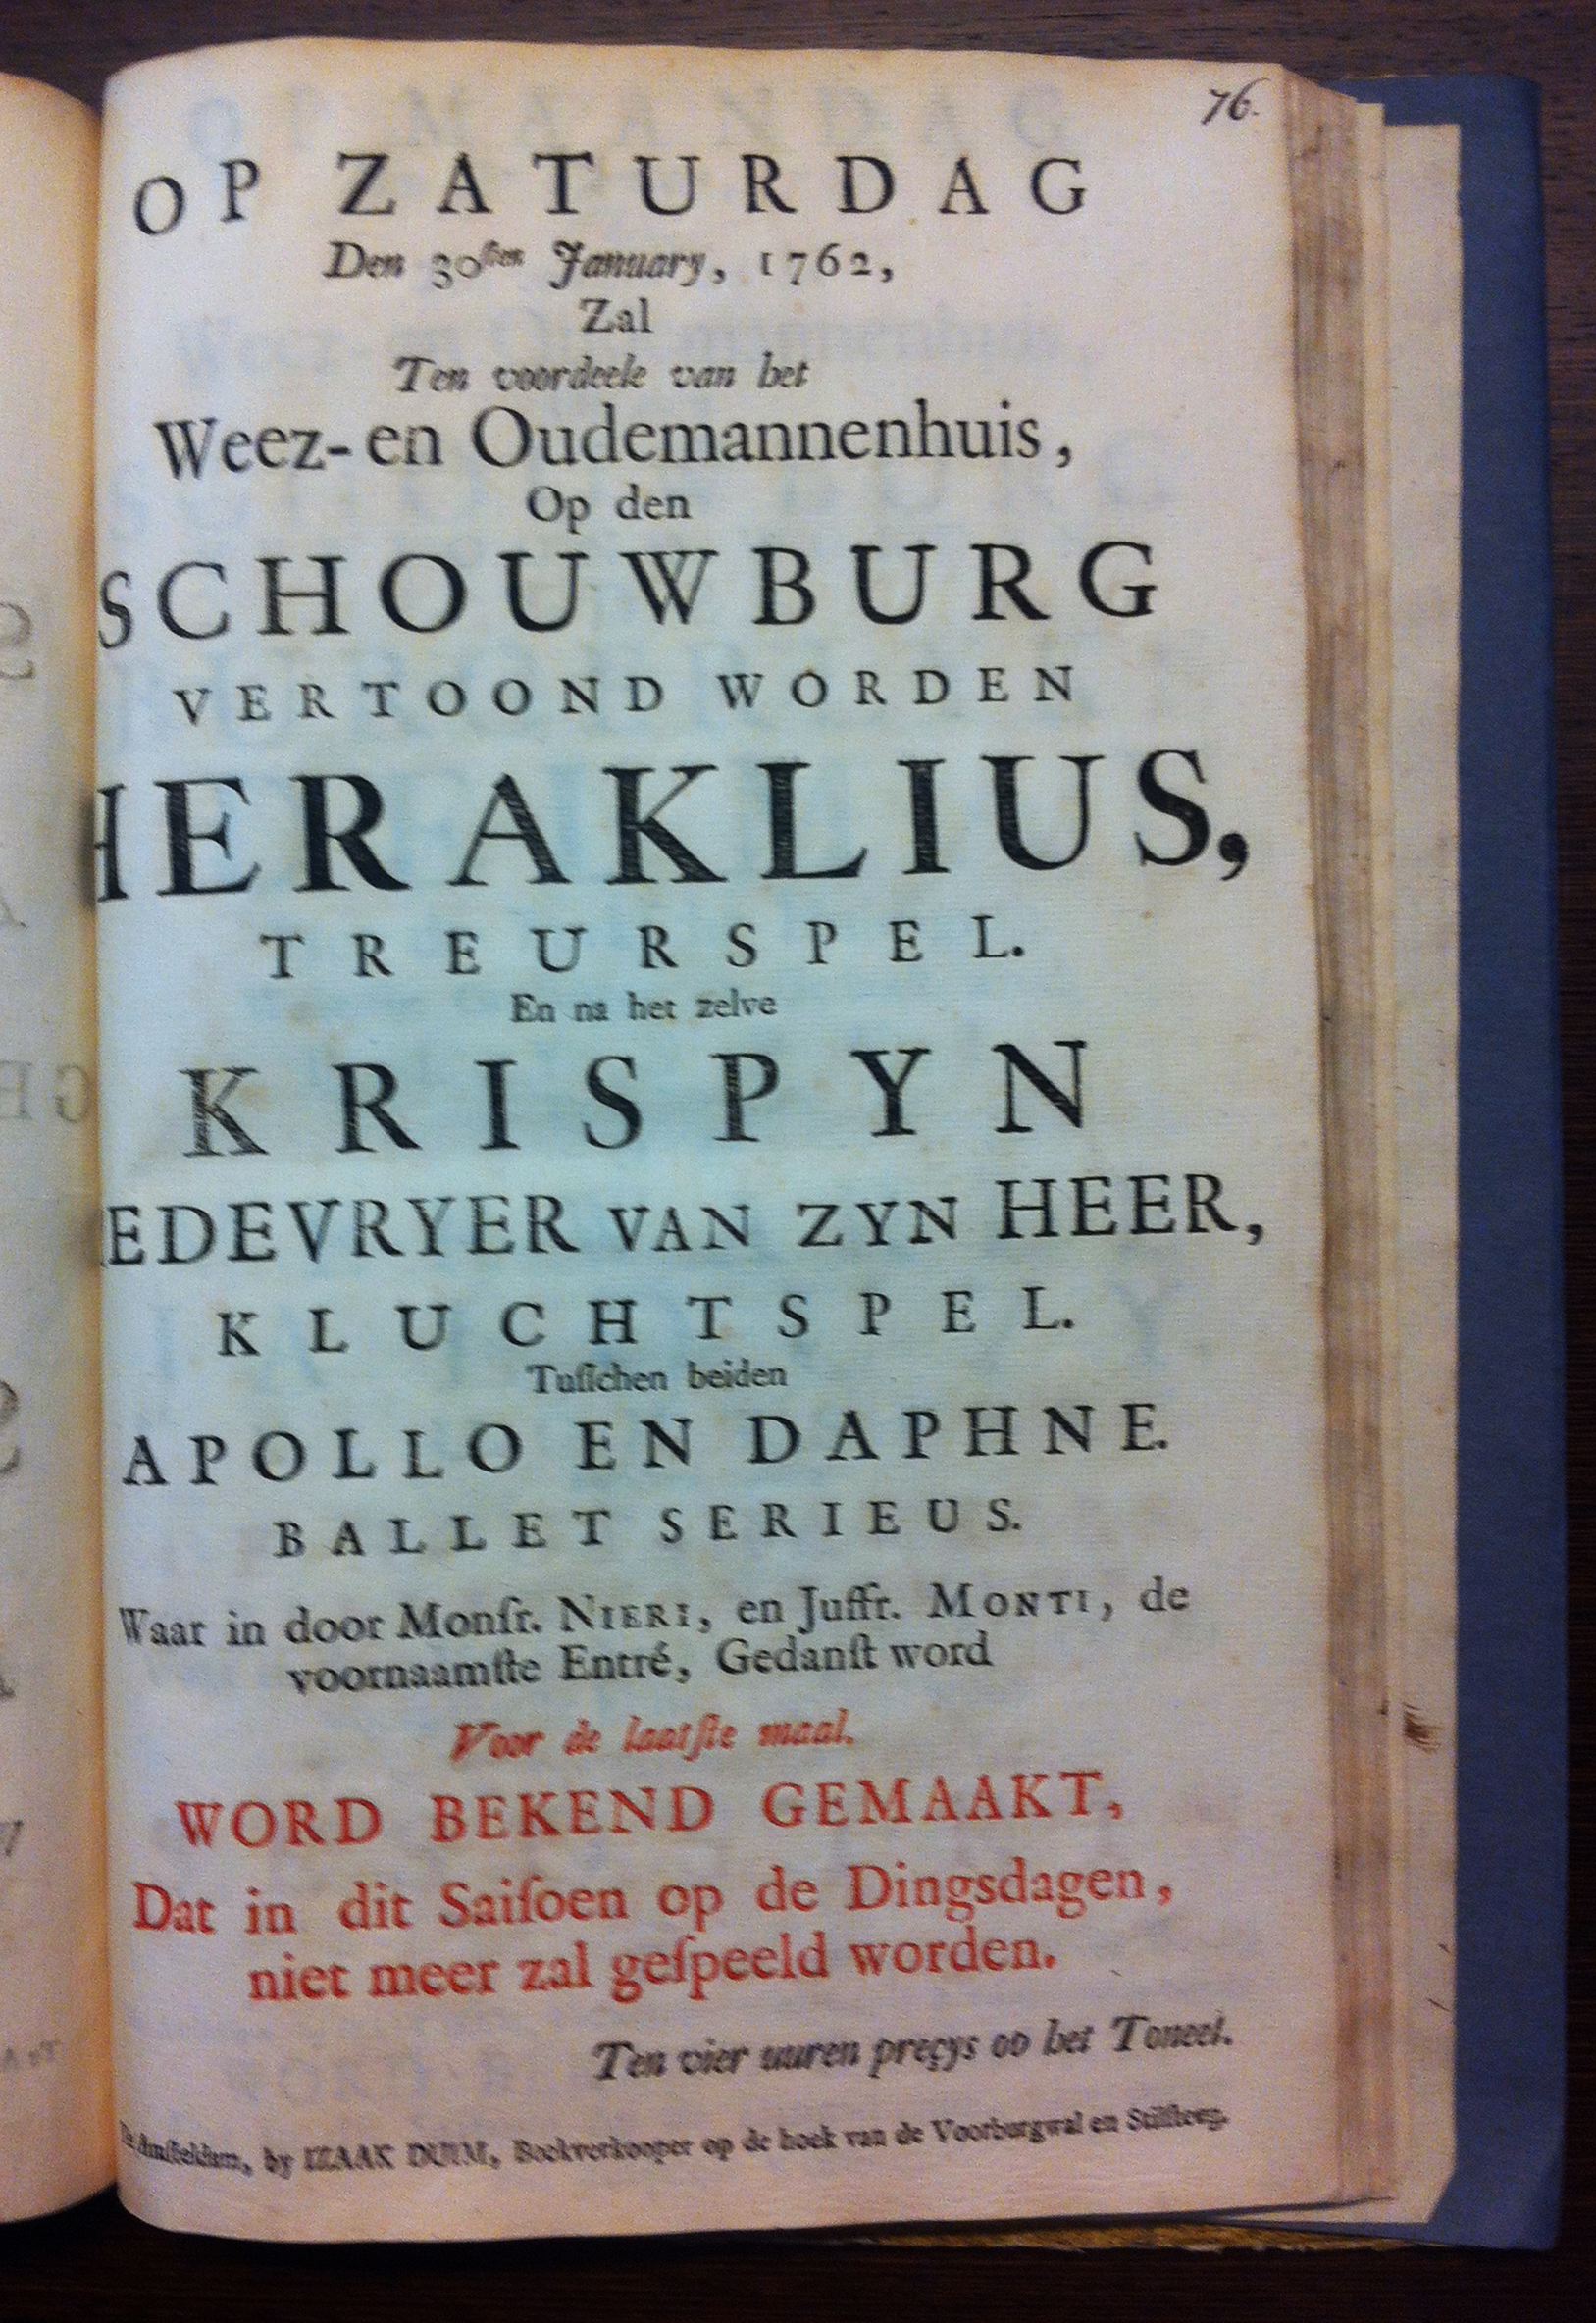 76.
OP ZATURDAG
Den 30ſten January, 1762,
Zal
Ten voordeele van het
Weez- en Oudemannenhuis,
Op den
SCHOUWBURG
VERTOOND WORDEN
HERAKLIUS,
TREURSPEL.
En na het zelve
KRISPYN
EDEVRYER VAN ZYN HEER,
KLUCHTSPEL.
Tuſſchen beiden
APOLLO EN DAPHNE.
BALLET SERIEUS.
Waar in door Monſr. NIERI, en Juffr. MONTI, de
voornaamſte Entré, Gedanſt word
Voor de laatſte maal.
WORD BEKEND GEMAAKT,
Dat in dit Saiſoen op de Dingsdagen,
niet meer zal geſpeeld worden.
Ten vier uuren preçys op het Toneel.
Te Amſteldam, by IZAAK DUIM, Boekverkooper op de hoek van de Voorburgwal en Stilſteeg.